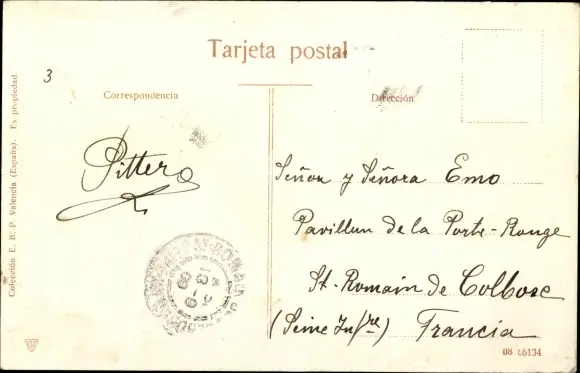 Tarjeta postal
3
Correspondencia
Dirección
Pittera
Señor y Señora Emo
Pavillon de la Porte-Rouge
St. Romain de Colbosc
(Seine Infre) Francia
08 66134
Colección E. B. P Valencia (España). Es propiedad